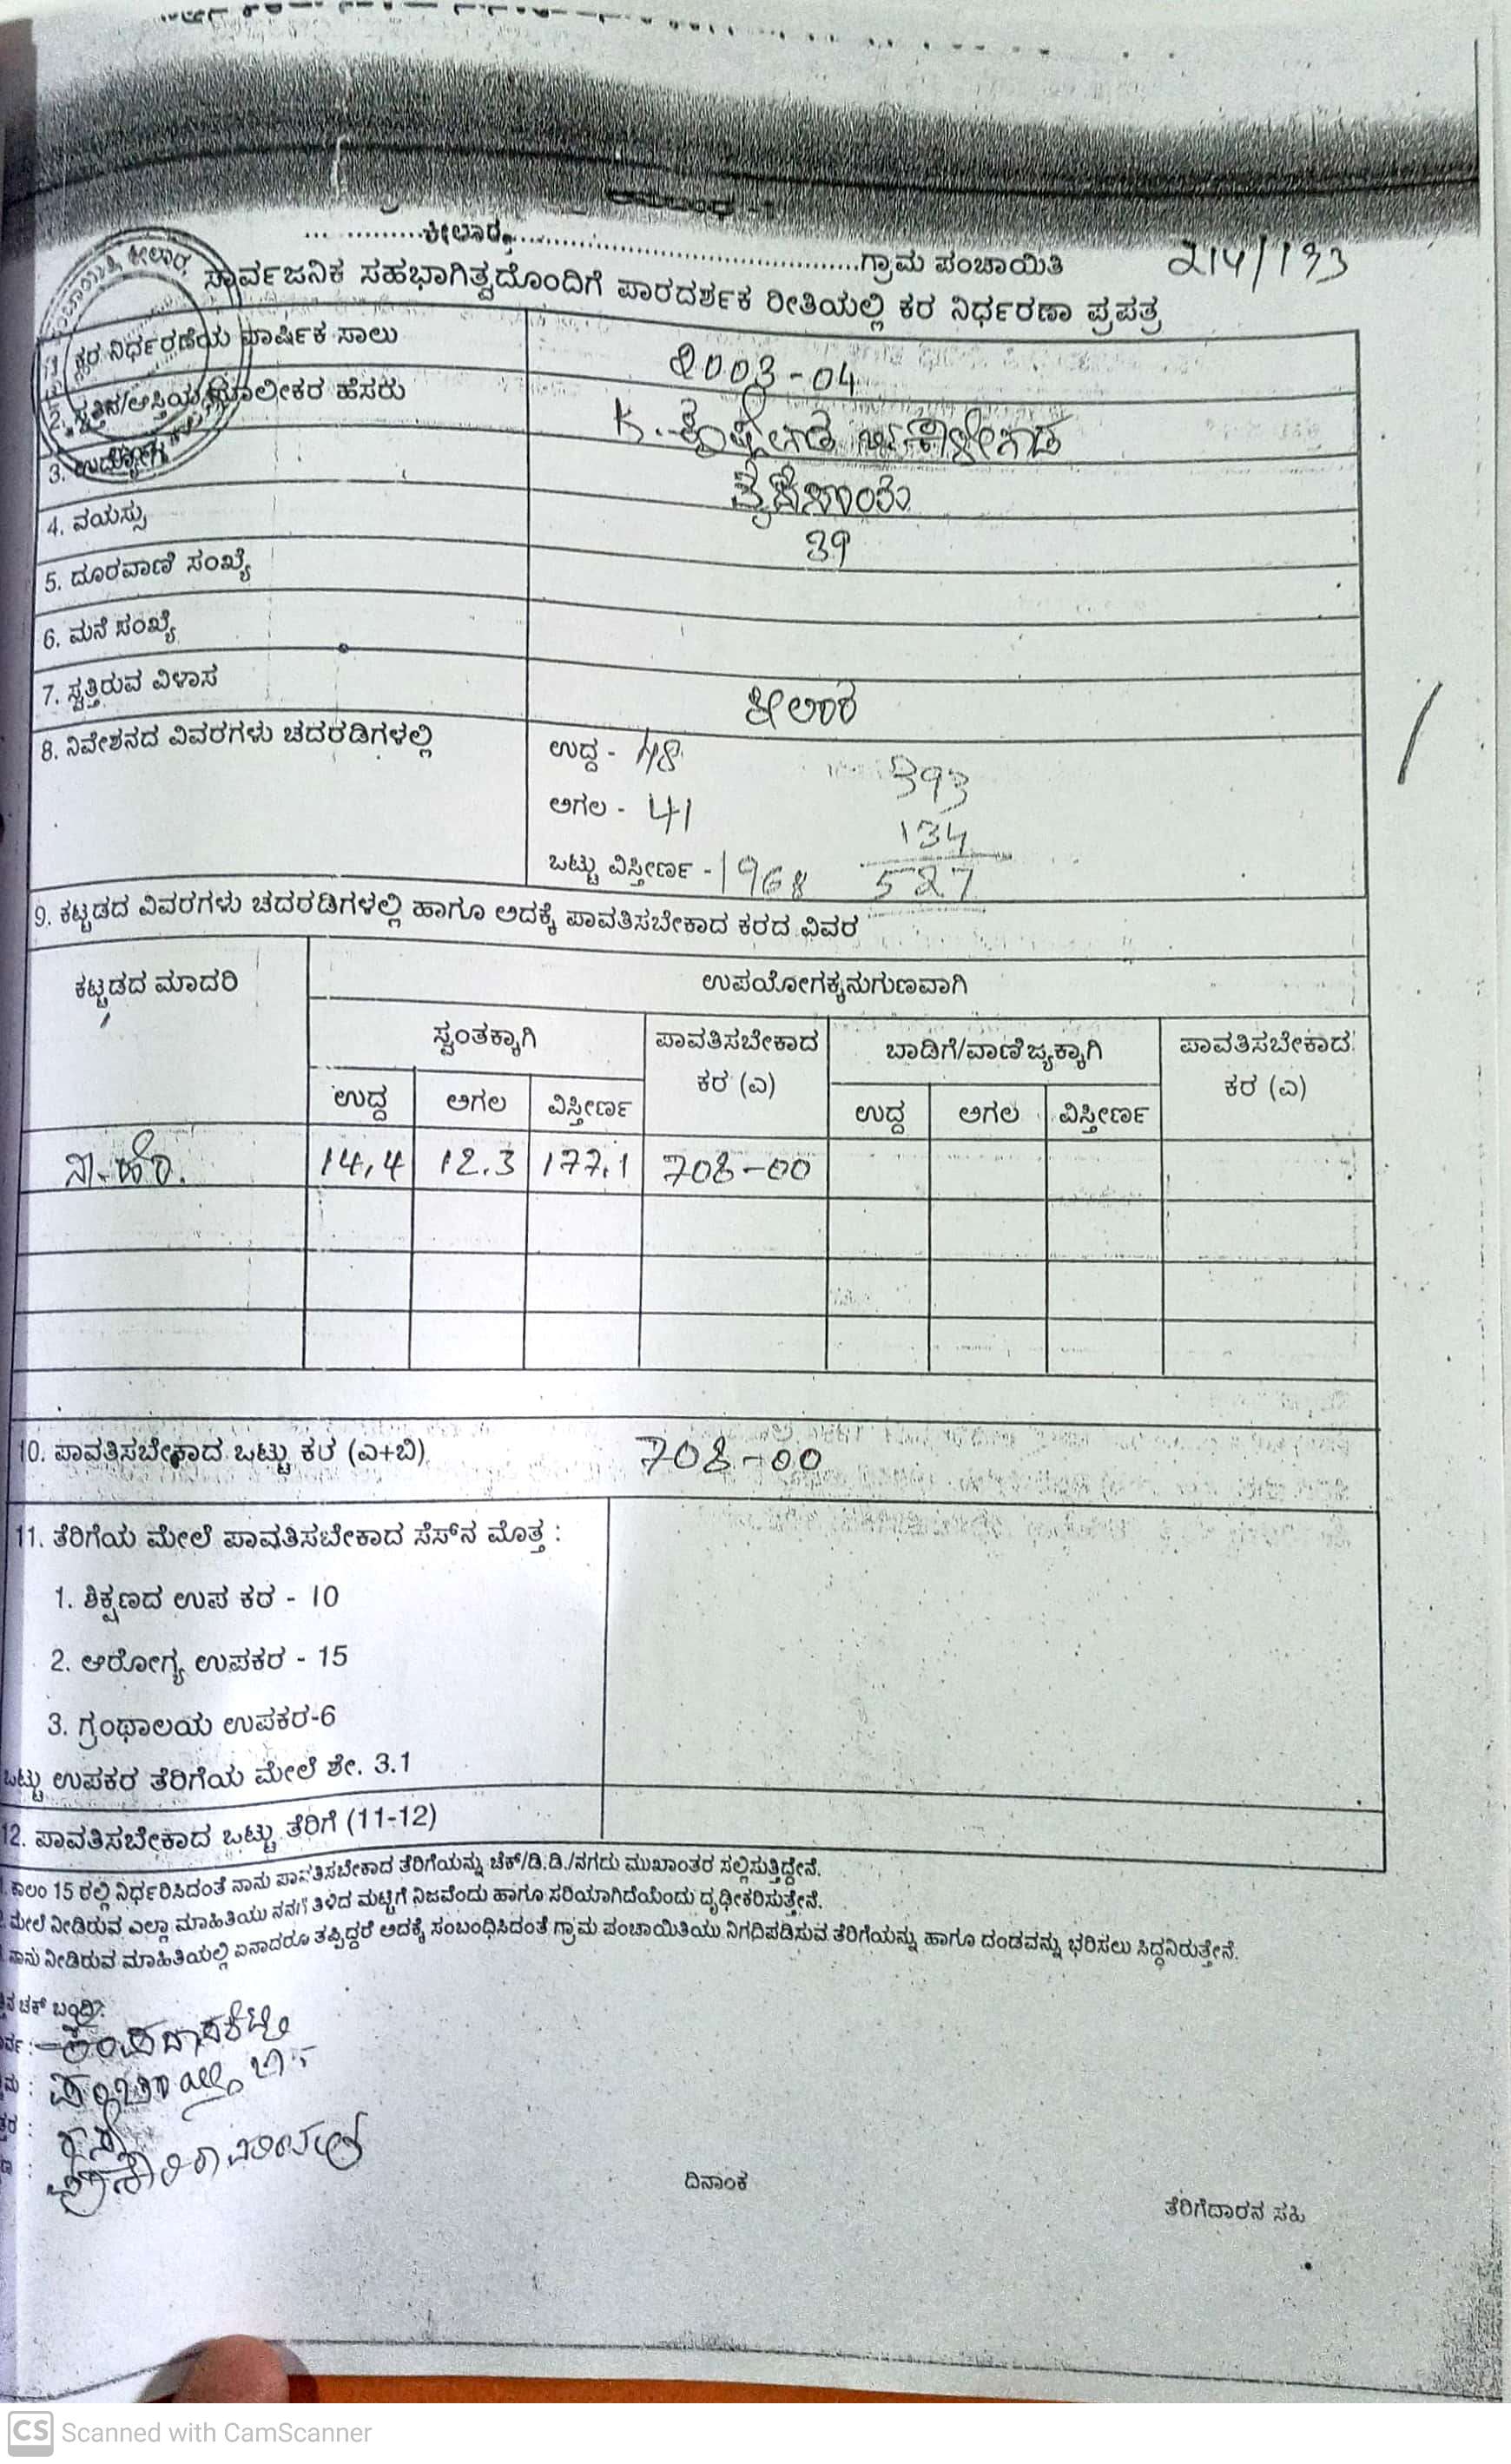 ಕೀಲಾರ, ಗ್ರಾಮ ಪಂಚಾಯಿತಿ 214/193
ಸಾರ್ವಜನಿಕ ಸಹಭಾಗಿತ್ವದೊಂದಿಗೆ ಪಾರದರ್ಶಕ ರೀತಿಯಲ್ಲಿ ಕರ ನಿರ್ಧರಣಾ ಪ್ರಪತ್ರ
1. ಕರ ನಿರ್ಧರಣೆಯ ವಾರ್ಷಿಕ ಸಾಲು 2003-04
2. ಸ್ವತ್ತಿನ/ಆಸ್ತಿಯ ಮಾಲೀಕರ ಹೆಸರು K.
3. ಉದ್ಯೋಗ
4. ವಯಸ್ಸು 39
5. ದೂರವಾಣಿ ಸಂಖ್ಯೆ
6. ಮನೆ ಸಂಖ್ಯೆ
7. ಸ್ವತ್ತಿರುವ ವಿಳಾಸ ಕೀಲಾರ
8. ನಿವೇಶನದ ವಿವರಗಳು ಚದರಡಿಗಳಲ್ಲಿ ಉದ್ದ - 48 393
ಅಗಲ - 41 134
ಒಟ್ಟು ವಿಸ್ತೀರ್ಣ - 1968 527
9. ಕಟ್ಟಡದ ವಿವರಗಳು ಚದರಡಿಗಳಲ್ಲಿ ಹಾಗೂ ಅದಕ್ಕೆ ಪಾವತಿಸಬೇಕಾದ ಕರದ ವಿವರ
ಕಟ್ಟಡದ ಮಾದರಿ ಉಪಯೋಗಕ್ಕನುಗುಣವಾಗಿ
ಸ್ವಂತಕ್ಕಾಗಿ ಪಾವತಿಸಬೇಕಾದ ಕರ (ಎ) ಬಾಡಿಗೆ/ವಾಣಿಜ್ಯಕ್ಕಾಗಿ ಪಾವತಿಸಬೇಕಾದ ಕರ (ಎ)
ಉದ್ದ ಅಗಲ ವಿಸ್ತೀರ್ಣ ಉದ್ದ ಅಗಲ ವಿಸ್ತೀರ್ಣ
ನಾ.ಹೆಂ. 14.4 12.3 177.1 708-00
10. ಪಾವತಿಸಬೇಕಾದ ಒಟ್ಟು ಕರ (ಎ+ಬಿ) 708-00
11. ತೆರಿಗೆಯ ಮೇಲೆ ಪಾವತಿಸಬೇಕಾದ ಸೆಸ್‌ನ ಮೊತ್ತ :
1. ಶಿಕ್ಷಣದ ಉಪ ಕರ - 10
2. ಆರೋಗ್ಯ ಉಪಕರ - 15
3. ಗ್ರಂಥಾಲಯ ಉಪಕರ-6
ಒಟ್ಟು ಉಪಕರ ತೆರಿಗೆಯ ಮೇಲೆ ಶೇ. 3.1
12. ಪಾವತಿಸಬೇಕಾದ ಒಟ್ಟು ತೆರಿಗೆ (11-12)
ಕಾಲಂ 15 ರಲ್ಲಿ ನಿರ್ಧರಿಸಿದಂತೆ ನಾನು ಪಾವತಿಸಬೇಕಾದ ತೆರಿಗೆಯನ್ನು ಚೆಕ್/ಡಿ.ಡಿ./ನಗದು ಮುಖಾಂತರ ಸಲ್ಲಿಸುತ್ತಿದ್ದೇನೆ.
ಮೇಲೆ ನೀಡಿರುವ ಎಲ್ಲಾ ಮಾಹಿತಿಯು ನನಗೆ ತಿಳಿದ ಮಟ್ಟಿಗೆ ನಿಜವೆಂದು ಹಾಗೂ ಸರಿಯಾಗಿದೆಯೆಂದು ದೃಢೀಕರಿಸುತ್ತೇನೆ.
ನಾನು ನೀಡಿರುವ ಮಾಹಿತಿಯಲ್ಲಿ ಏನಾದರೂ ತಪ್ಪಿದ್ದರೆ ಅದಕ್ಕೆ ಸಂಬಂಧಿಸಿದಂತೆ ಗ್ರಾಮ ಪಂಚಾಯಿತಿಯು ನಿಗದಿಪಡಿಸುವ ತೆರಿಗೆಯನ್ನು ಹಾಗೂ ದಂಡವನ್ನು ಭರಿಸಲು ಸಿದ್ಧನಿರುತ್ತೇನೆ.
ಚಕ್ ಬಂದಿ:
ರಸ್ತೆ
ದಿನಾಂಕ ತೆರಿಗೆದಾರನ ಸಹಿ
CS Scanned with CamScanner